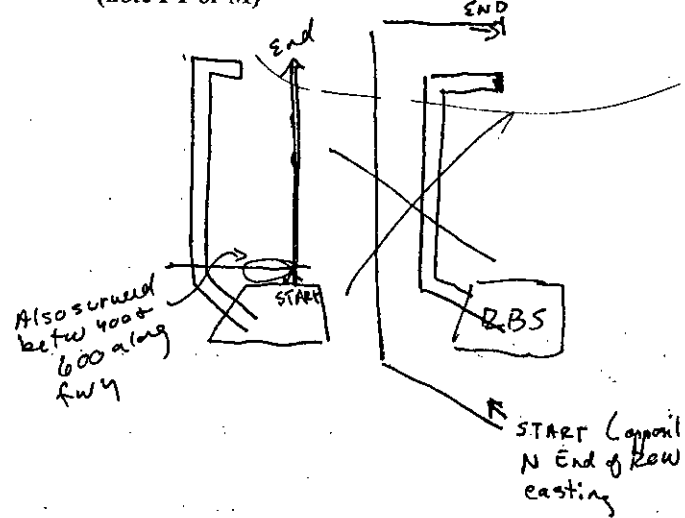 END
End
START
Also surveyed
betw 400+
600 along
fwy
RBS
START (opposit
N End of ROW
casting